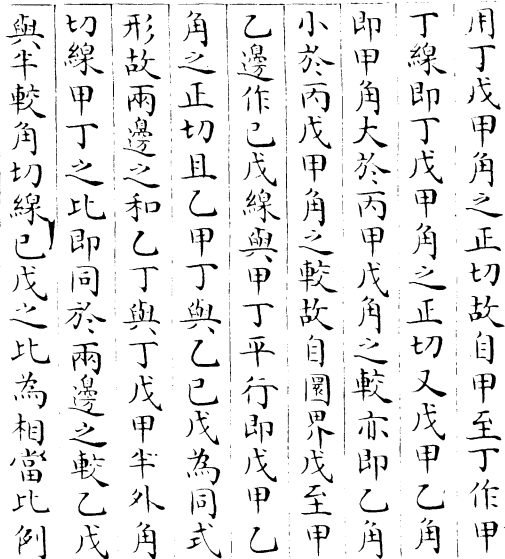 用丁戊甲角之正切故自甲至丁作甲
丁線即丁戊甲角之正切又戊甲乙角
即甲角大於丙甲戊角之較亦即乙角
小於丙戊甲角之較故自圜界戊至甲
乙邊作己戊線與甲丁平行即戊甲乙
角之正切且乙甲丁與乙己戊為同式
形故兩邊之和乙丁與丁戊甲半外角
切線甲丁之比即同於兩邊之較乙戊
與半較角切線己戊之比為相當比例